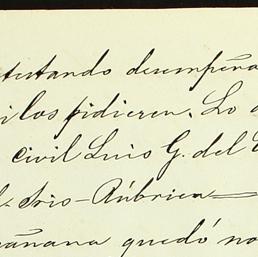 testando desempeña
i los pidieren. Lo
civil Luis G. del
Srio-Rúbrica
añana quedó no